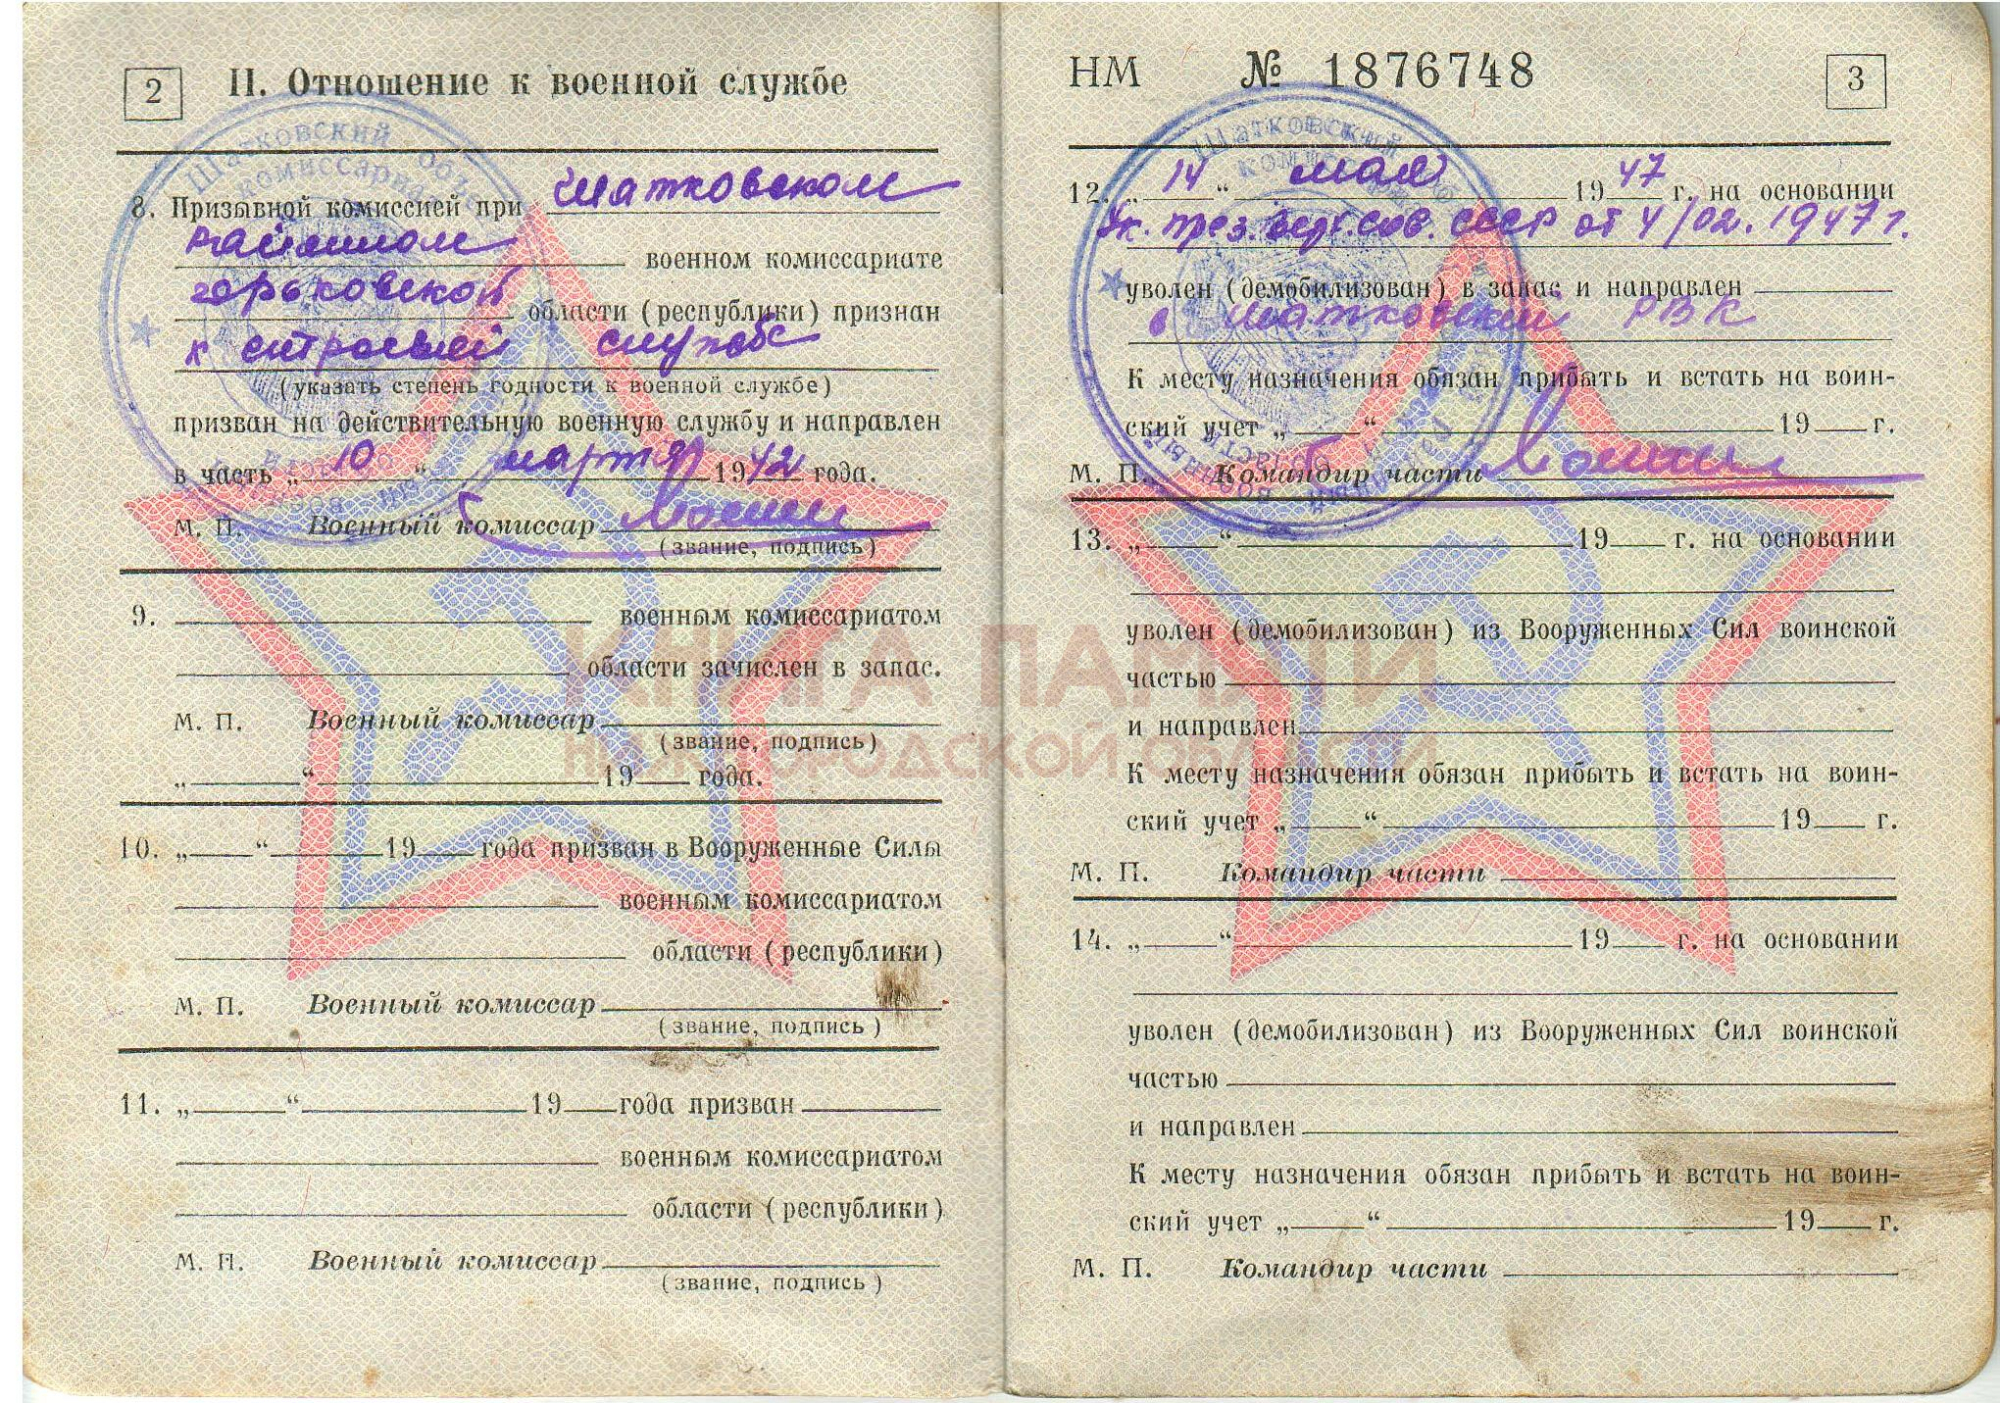 2
II. Отношение к военной службе
8. Призывной комиссией при Шатковском
райпном
военном комиссариате
горьковской области (республики) признан
к строевой службе
(указать степень годности к военной службе)
призван на действительную военную службу и направлен
в часть „10“ марта 1942 года.
М. П. Военный комиссар
(звание, подпись)
9. военным комиссариатом
области зачислен в запас.
М. П. Военный комиссар
(звание, подпись)
„ “ 19 года.
10. „ “ 19 года призван в Вооруженные Силы
военным комиссариатом
области (республики)
М. П. Военный комиссар
(звание, подпись)
11. „ “ 19 года призван
военным комиссариатом
области (республики)
М. П. Военный комиссар
(звание, подпись)
НМ № 1876748
3
12. „14“ мая 1947 г. на основании
Ук. през. верх. сов. СССР от 4/02. 1947 г.
уволен (демобилизован) в запас и направлен
в Шатковский РВК
К месту назначения обязан прибыть и встать на воин-
ский учет „ “ 19 г.
М. П. Командир части
13. „ “ 19 г. на основании
уволен (демобилизован) из Вооруженных Сил воинской
частью
и направлен
К месту назначения обязан прибыть и встать на воин-
ский учет „ “ 19 г.
М. П. Командир части
14. „ “ 19 г. на основании
уволен (демобилизован) из Вооруженных Сил воинской
частью
и направлен
К месту назначения обязан прибыть и встать на воин-
ский учет „ “ 19 г.
М. П. Командир части
КНИГА ПАМЯТИ
НИЖЕГОРОДСКОЙ ОБЛАСТИ